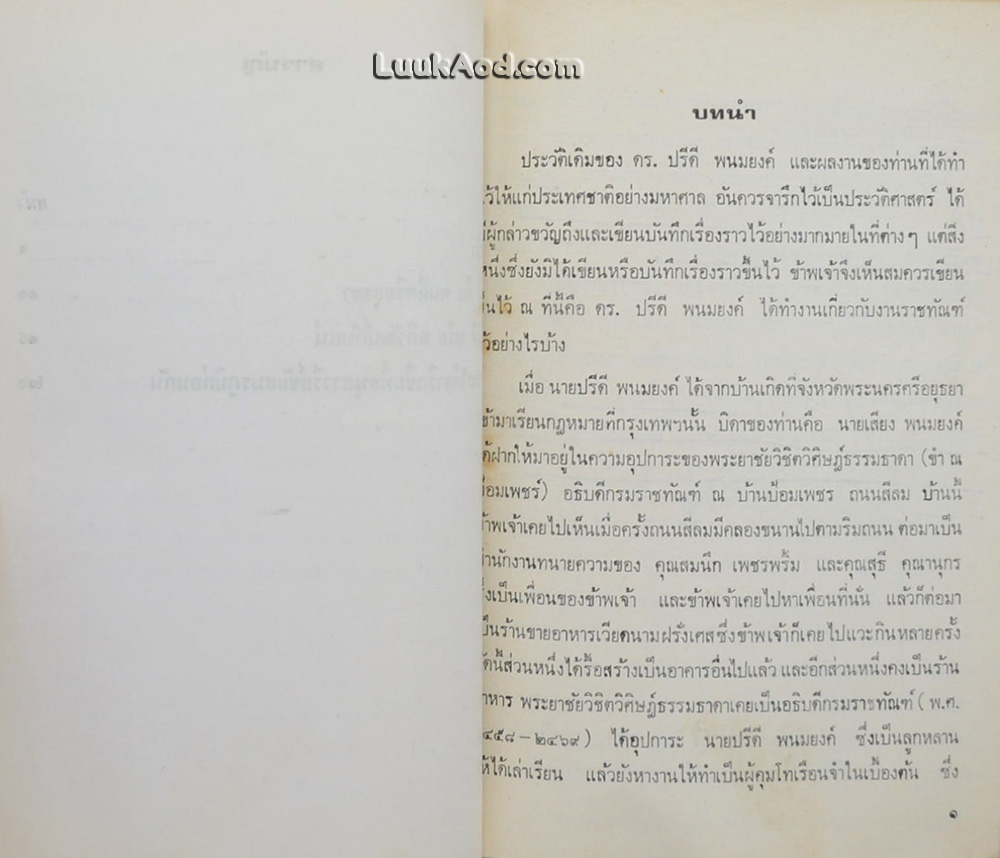 LuukAod.com
บทนำ
ประวัติเดิมของ ดร. ปรีดี พนมยงค์ และผลงานของท่านที่ได้ทำ
ไว้ให้แก่ประเทศชาติอย่างมหาศาล อันควรจารึกไว้เป็นประวัติศาสตร์ ได้
มีผู้กล่าวขวัญถึงและเขียนบันทึกเรื่องราวไว้อย่างมากมายในที่ต่างๆ แต่สิ่ง
หนึ่งซึ่งยังมิได้เขียนหรือบันทึกเรื่องราวขึ้นไว้ ข้าพเจ้าจึงเห็นสมควรเขียน
ขึ้นไว้ ณ ที่นี้คือ ดร. ปรีดี พนมยงค์ ได้ทำงานเกี่ยวกับงานราชทัณฑ์
ไว้อย่างไรบ้าง
เมื่อ นายปรีดี พนมยงค์ ได้จากบ้านเกิดที่จังหวัดพระนครศรีอยุธยา
เข้ามาเรียนกฎหมายที่กรุงเทพฯนั้น บิดาของท่านคือ นายเสียง พนมยงค์
ได้ฝากให้มาอยู่ในความอุปการะของพระยาชัยวิชิตวิศิษฎ์ธรรมธาดา (ขำ ณ
ป้อมเพชร์) อธิบดีกรมราชทัณฑ์ ณ บ้านป้อมเพชร ถนนสีลม บ้านนี้
ข้าพเจ้าเคยไปเห็นเมื่อครั้งถนนสีลมมีคลองขนานไปตามริมถนน ต่อมาเป็น
สำนักงานทนายความของ คุณสมนึก เพชรพริ้ม และคุณสุธี คุณานุกร
ซึ่งเป็นเพื่อนของข้าพเจ้า และข้าพเจ้าเคยไปหาเพื่อนที่นั่น แล้วก็ต่อมา
เป็นร้านขายอาหารเวียดนามฝรั่งเศสซึ่งข้าพเจ้าก็เคยไปแวะกินหลายครั้ง
บัดนี้ส่วนหนึ่งได้รื้อสร้างเป็นอาคารอื่นไปแล้ว และอีกส่วนหนึ่งคงเป็นร้าน
อาหาร พระยาชัยวิชิตวิศิษฎ์ธรรมธาดาเคยเป็นอธิบดีกรมราชทัณฑ์ ( พ.ศ.
๔๕๘ – ๒๔๖๙ ) ได้อุปการะ นายปรีดี พนมยงค์ ซึ่งเป็นลูกหลาน
ให้ได้เล่าเรียน แล้วยังหางานให้ทำเป็นผู้คุมโทเรือนจำในเบื้องต้น ซึ่ง
๑